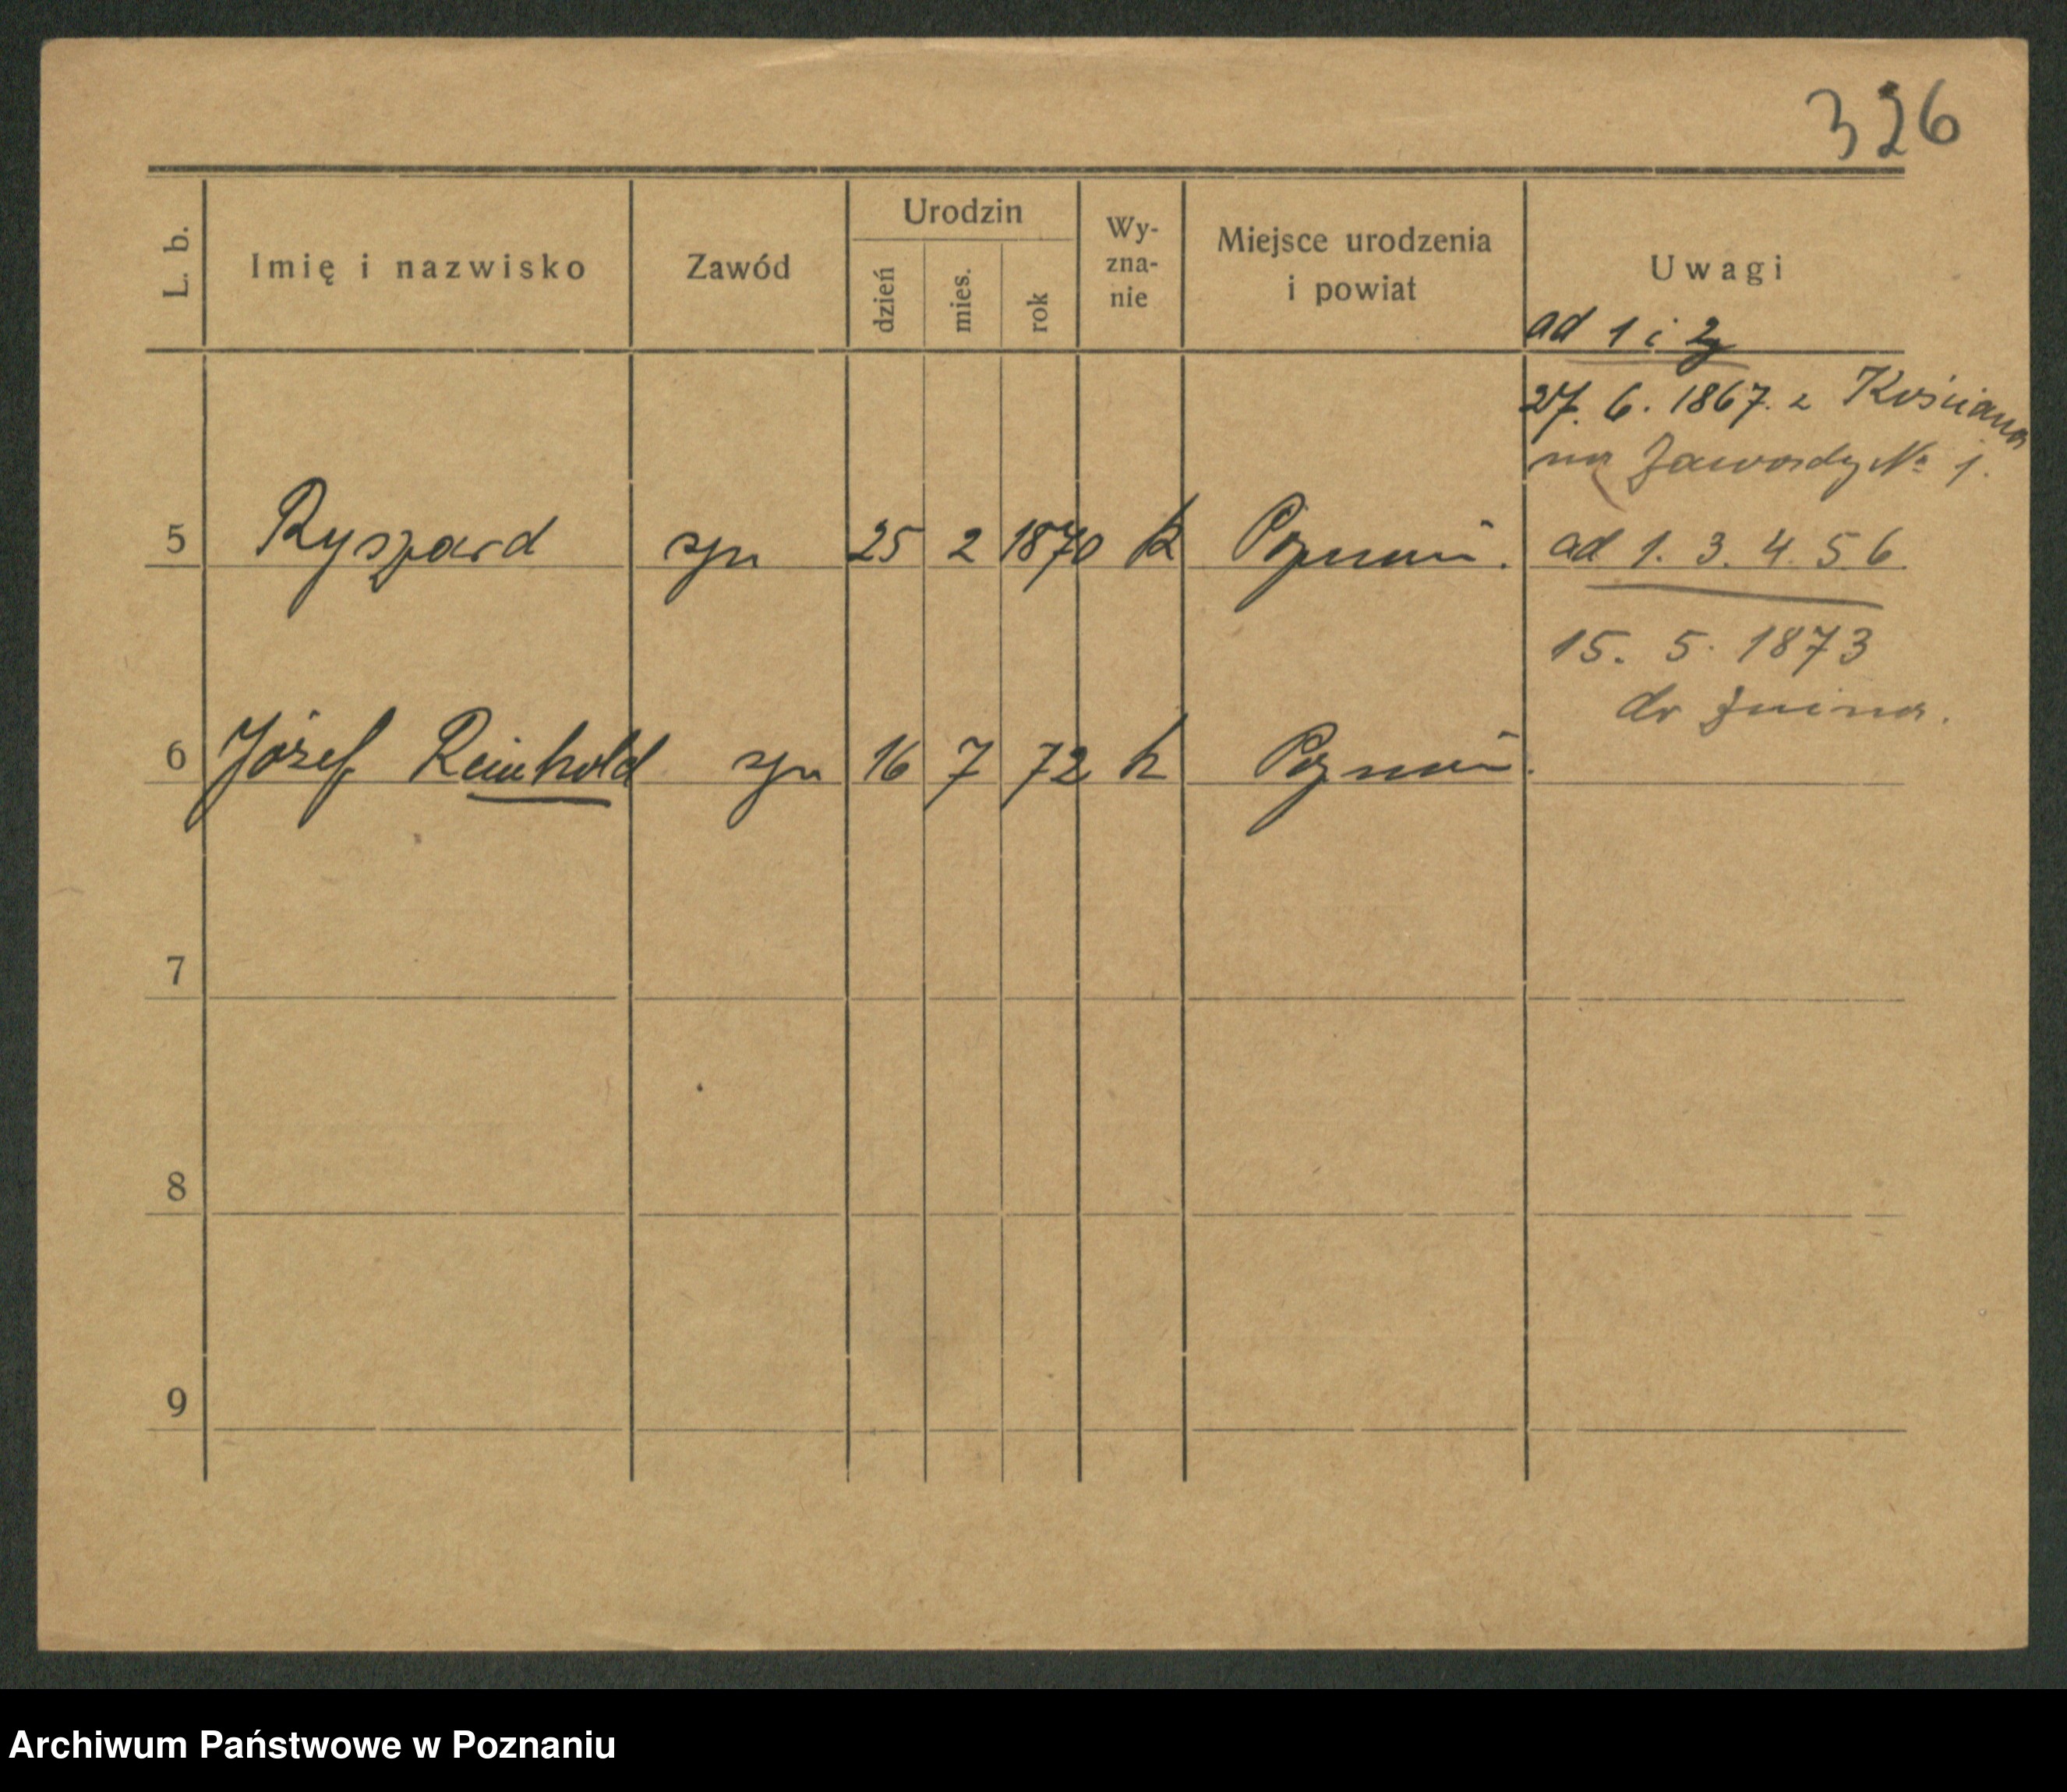 326
L. b.
Imię i nazwisko
Zawód
Urodzin
dzień
mies.
rok
Wy-
zna-
nie
Miejsce urodzenia
i powiat
Uwagi
ad 1 i 2
27. 6. 1867. z Kościana
na Zawady № 1.
5 Ryszard syn 25 2 1870 k Poznań. ad 1. 3. 4. 5 6.
15. 5. 1873
do Żnina.
6 Józef Reinhold syn 16 7 72 k Poznań.
7
8
9
Archiwum Państwowe w Poznaniu